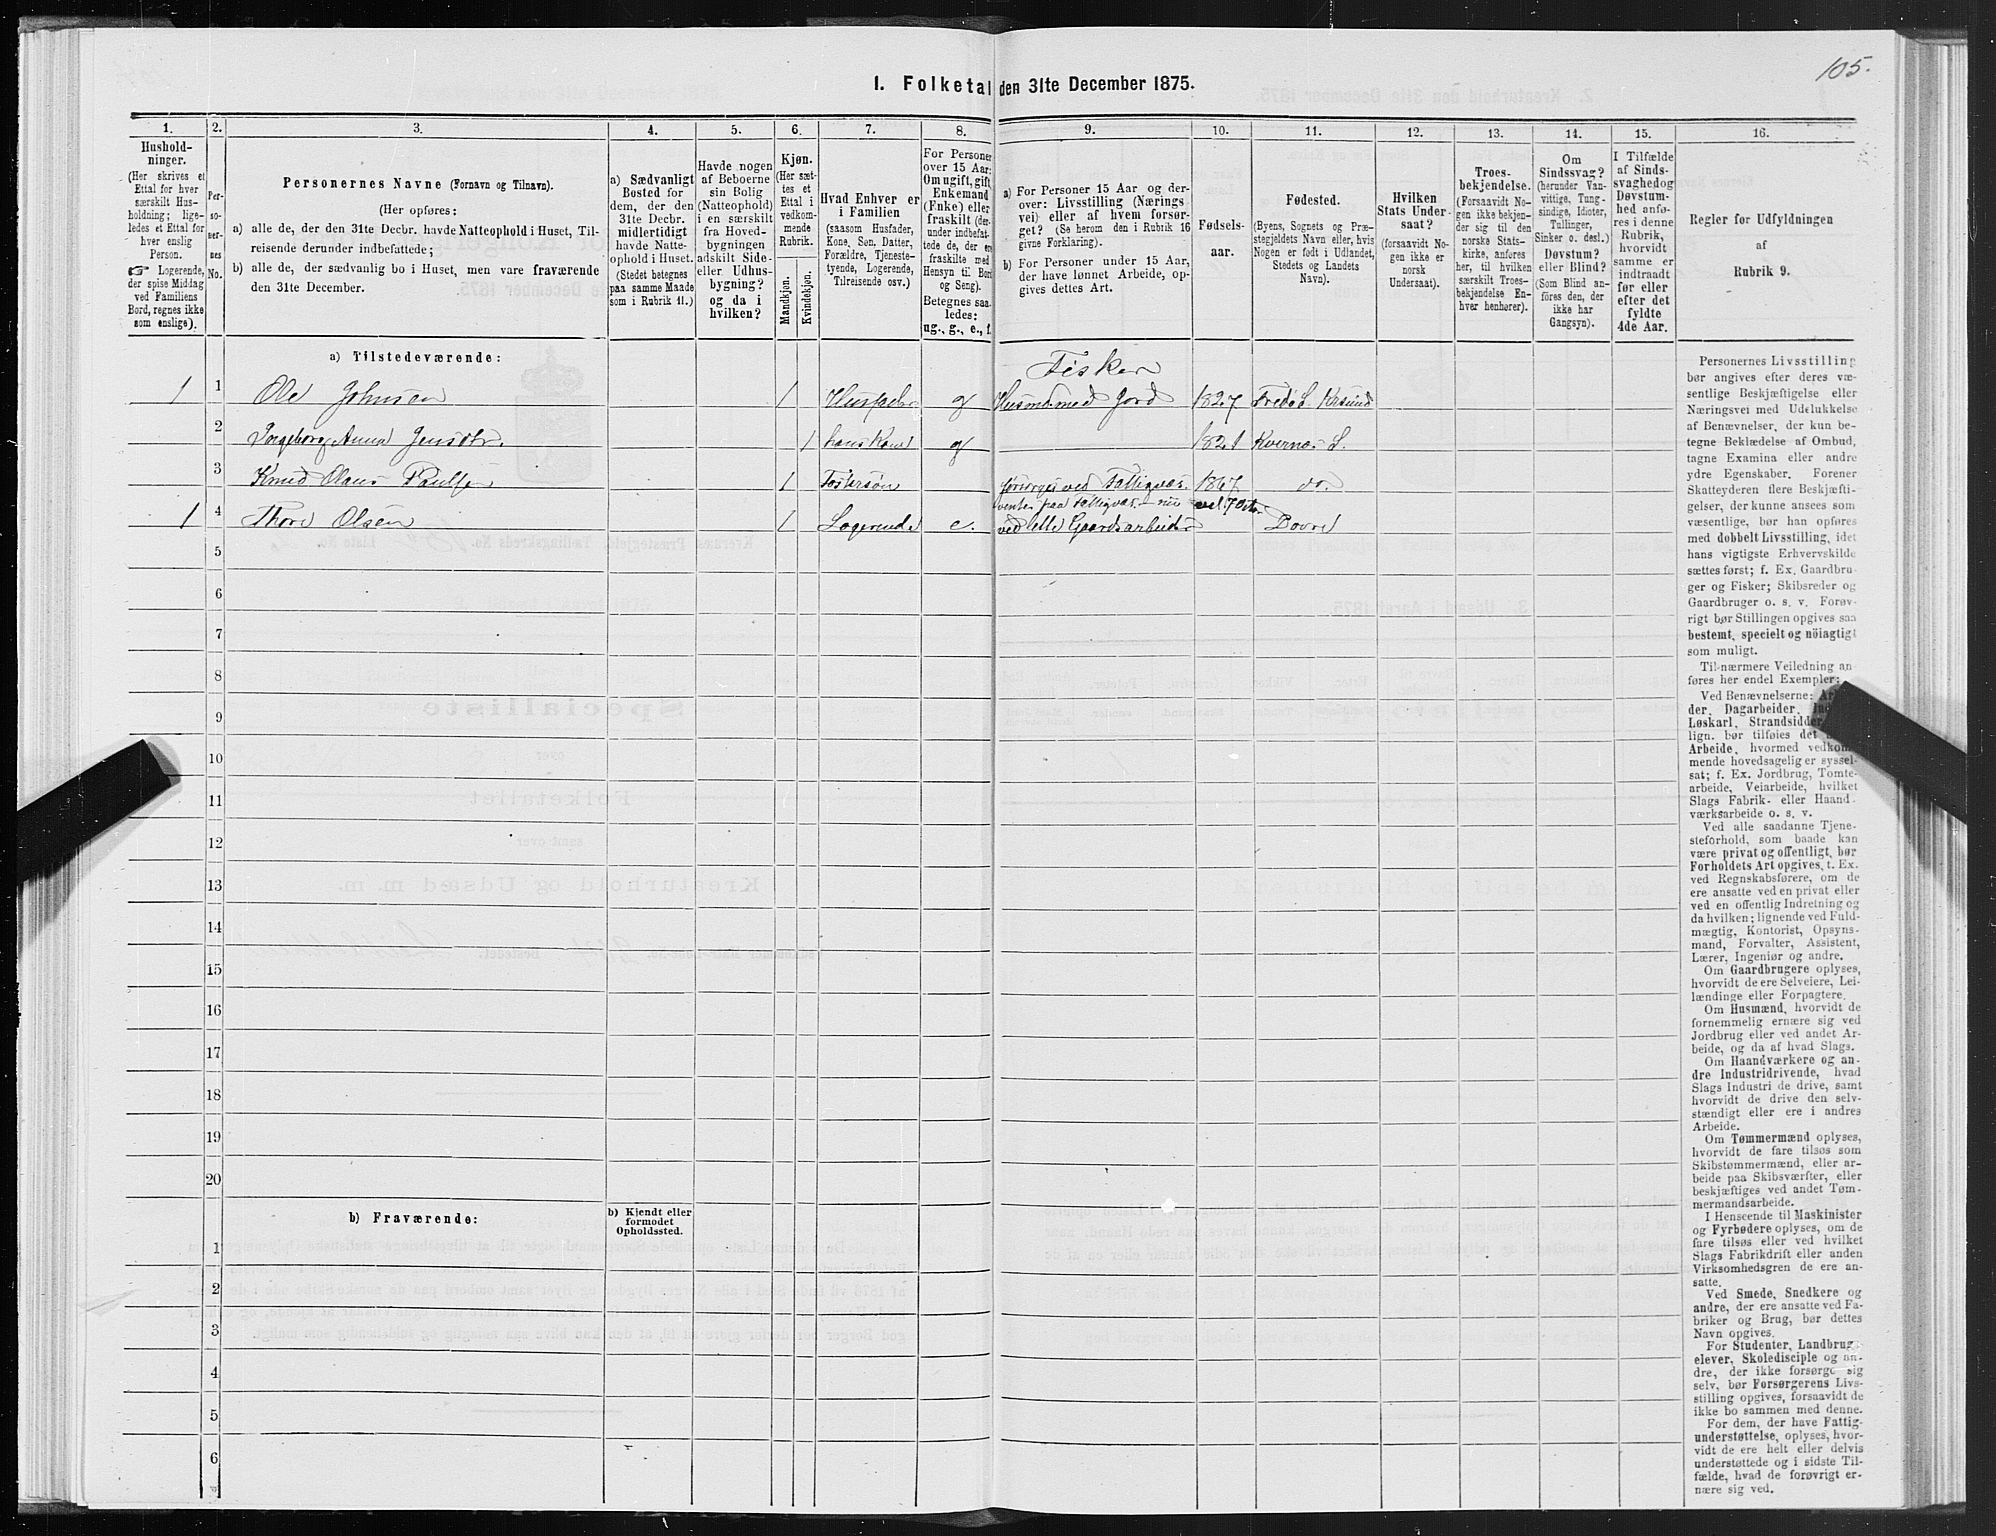 105.
1. Folketal den 31te December 1875.
1.
2.
3.
4.
5.
6.
7.
8.
9.
10.
11.
12.
13.
14.
15.
16.
Hushold-
ninger.
(Her skrives et
Ettal for hver
særskilt Hus-
holdning; lige-
ledes et Ettal for
hver enslig
Person.
☞ Logerende,
der spise Middag
ved Familiens
Bord, regnes ikke
som enslige).
Per-
so-
ner-
nes
No.
Personernes Navne (Fornavn og Tilnavn).
(Her opføres:
a) alle de, der den 31te Decbr. havde Natteophold i Huset, Til-
reisende derunder indbefattede;
b) alle de, der sædvanlig bo i Huset, men vare fraværende
den 31te December.
a) Sædvanligt
Bosted for
dem, der den
31te Decbr.
midlertidigt
havde Natte-
ophold i Huset.
(Stedet betegnes
paa samme Maade
som i Rubrik 11.)
Havde nogen
af Beboerne
sin Bolig
(Natteophold)
i en særskilt
fra Hoved-
bygningen
adskilt Side-
eller Udhus-
bygning?
og da i
hvilken?
Kjøn.
(Her sæt-
tes et
Ettal i
vedkom-
mende
Rubrik.
Mandkjøn.
Kvindekjøn.
Hvad Enhver er
i Familien
(saasom Husfader,
Kone, Søn, Datter,
Forældre, Tjeneste-
tyende, Logerende,
Tilreisende osv.)
For Personer
over 15 Aar:
Om ugift, gift,
Enkemand
(Enke) eller
fraskilt (der-
under indbefat-
tede de, der ere
fraskilte med
Hensyn til Bord
og Seng).
Betegnes saa-
ledes:
ug., g., e., f.
a) For Personer 15 Aar og der-
over: Livsstilling (Nærings
vei) eller af hvem forsør-
get? (Se herom den i Rubrik 16
givne Forklaring).
b) For Personer under 15 Aar,
der have lønnet Arbeide, op-
gives dettes Art.
Fødsels-
aar.
Fødested.
(Byens, Sognets og Præ-
stegjeldets Navn eller, hvis
Nogen er født i Udlandet,
Stedets og Landets
Navn).
Hvilken
Stats Under-
saat?
(forsaavidt No-
gen ikke er
norsk
Undersaat).
Troes-
bekjendelse.
(Forsaavidt No-
gen ikke bekjen-
der sig til den
norske Stats-
kirke, anføres
her, til hvilken
særskilt Troes-
bekjendelse En-
hver henhører).
Om
Sindssvag?
(herunder Van-
vittige, Tung-
sindige, Idioter,
Tullinger,
Sinker o. desl.)
Døvstum?
eller Blind?
(Som Blind an-
føres den, der
ikke har
Gangsyn).
I Tilfælde
af Sinds-
svaghed og
Døvstum-
hed anfø-
res i denne
Rubrik,
hvorvidt
samme er
indtraadt
før eller
efter det
fyldte
4de Aar.
Regler for Udfyldningen
af
Rubrik 9.
a) Tilstedeværende:
Fisker
1 1 Ole Johnsen 1 Husfader g Husmd. med Jord 1827 Fredø S. Krsund
2 Ingeborg Anna Jensdtr. 1 hans Kone g 1821 Kvernæs S.
3 Knud Olaus Paulsen 1 Fostersøn forsørges ved Fattigvæs. 1867 do.
venter paa Fattigvæs. – nu vel 70 Aar.
1 4 Thore Olsen 1 Logerende e. ved lette Gaardsarbeider Dovre
5
6
7
8
9
10
11
12
13
14
15
16
17
18
19
20
b) Fraværende:
b) Kjendt eller
formodet
Opholdssted.
1
2
3
4
5
6
Personernes Livsstilling
bør angives efter deres væ-
sentlige Beskjæftigelse eller
Næringsvei med Udelukkelse
af Benævnelser, der kun be-
tegne Beklædelse af Ombud,
tagne Examina eller andre
ydre Egenskaber. Forener
Skatteyderen flere Beskjæfti-
gelser, der kunne ansees som
væsentlige, bør han opføres
med dobbelt Livsstilling, idet
hans vigtigste Erhvervskilde
sættes først; f. Ex. Gaardbru-
ger og Fisker; Skibsreder og
Gaardbruger o. s. v. Forøv-
rigt bør Stillingen opgives saa
bestemt, specielt og nöiagtigt
som muligt.
Til nærmere Veiledning an-
føres her endel Exempler:
Ved Benævnelserne: Ar
der, Dagarbeider, In
Løskarl, Strandsidder
lign. bør tilføies det
Arbeide, hvormed vedkom-
mende hovedsagelig er syssel-
sat; f. Ex. Jordbrug, Tomte-
arbeide, Veiarbeide, hvilket
Slags Fabrik- eller Haand-
værksarbeide o. s. v.
Ved alle saadanne Tjene-
steforhold, som baade kan
være privat og offentligt, bør
Forholdets Art opgives, t. Ex.
ved Regnskabsførere, om de
ere ansatte ved en privat eller
ved en offentlig Indretning og
da hvilken; lignende ved Fuld-
mægtig, Kontorist, Opsyns-
mand, Forvalter, Assistent,
Lærer, Ingeniør og andre.
Om Gaardbrugere oplyses,
hvorvidt de ere Selveiere, Lei-
lændinge eller Forpagtere.
Om Husmænd, hvorvidt de
fornemmelig ernære sig ved
Jordbrug eller ved andet Ar-
beide, og da af hvad Slags.
Om Haandværkere og an-
dre Industridrivende, hvad
Slags Industri de drive, samt
hvorvidt de drive den selv-
stændigt eller ere i andres
Arbeide.
Om Tømmermænd oplyses,
hvorvidt de fare tilsøs som
Skibstømmermænd, eller ar-
beide paa Skibsværfter, eller
beskjæftiges ved andet Tøm-
mermandsarbeide.
I Henseende til Maskinister
og Fyrbødere oplyses, om de
fare tilsøs eller ved hvilket
Slags Fabrikdrift eller anden
Virksomhedsgren de ere an-
satte.
Ved Smede, Snedkere og
andre, der ere ansatte ved Fa-
briker og Brug, bør dettes
Navn opgives.
For Studenter, Landbrugs-
elever, Skoledisciple og an-
dre, der ikke forsørge sig
selv, bør Forsørgerens Livs-
stilling opgives, forsaavidt de
ikke bo sammen med denne.
For dem, der have Fattig-
understøttelse, oplyses, hvor-
vidt de ere helt eller delvis
understøttede og i sidste Til-
fælde, hvad de forøvrigt er-
nære sig ved.